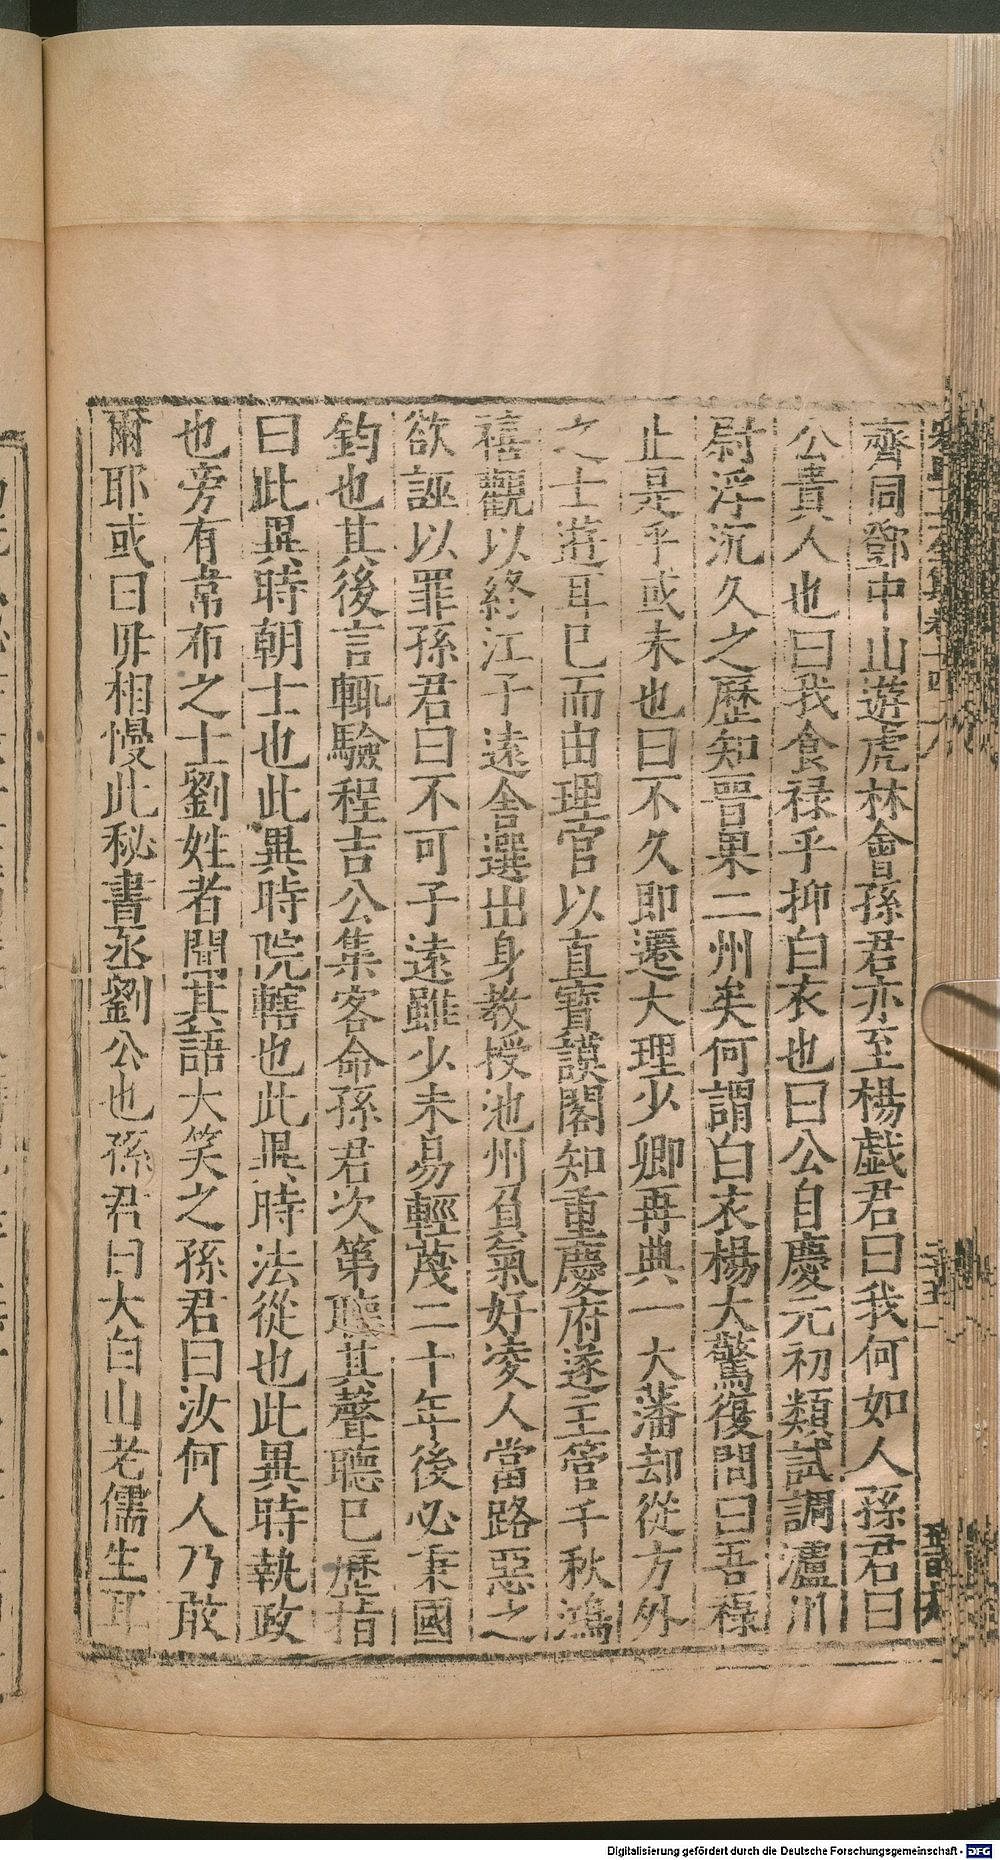 齊同鄧中山遊虎林會孫君亦至楊戯君曰我何如人孫君曰
公貴人也曰我食禄乎抑白衣也曰公自慶元初類試調瀘川
尉浮沉久之歷知晋果二州矣何謂白衣楊大驚復問曰吾禄
止是乎或未也曰不久即遷大理少卿再典一大藩却從方外
之士遊耳已而由理官以直寳謨閣知重慶府遂主管千秋鴻
禧觀以終江子遠舍選出身教授池州負氣好凌人當路惡之
欲誣以罪孫君曰不可子遠雖少未易輕蔑二十年後必秉國
鈞也其後言輒驗程吉公集客命孫君次第聽其聲聽已歷指
曰此異時朝士也此異時院轄也此異時法從也此異時執政
也旁有韋布之士劉姓者聞其語大笑之孫君曰汝何人乃敢
爾耶或曰毋相慢此秘書丞劉公也孫君曰大白山老儒生耳
Digitalisierung gefördert durch die Deutsche Forschungsgemeinschaft - DFG